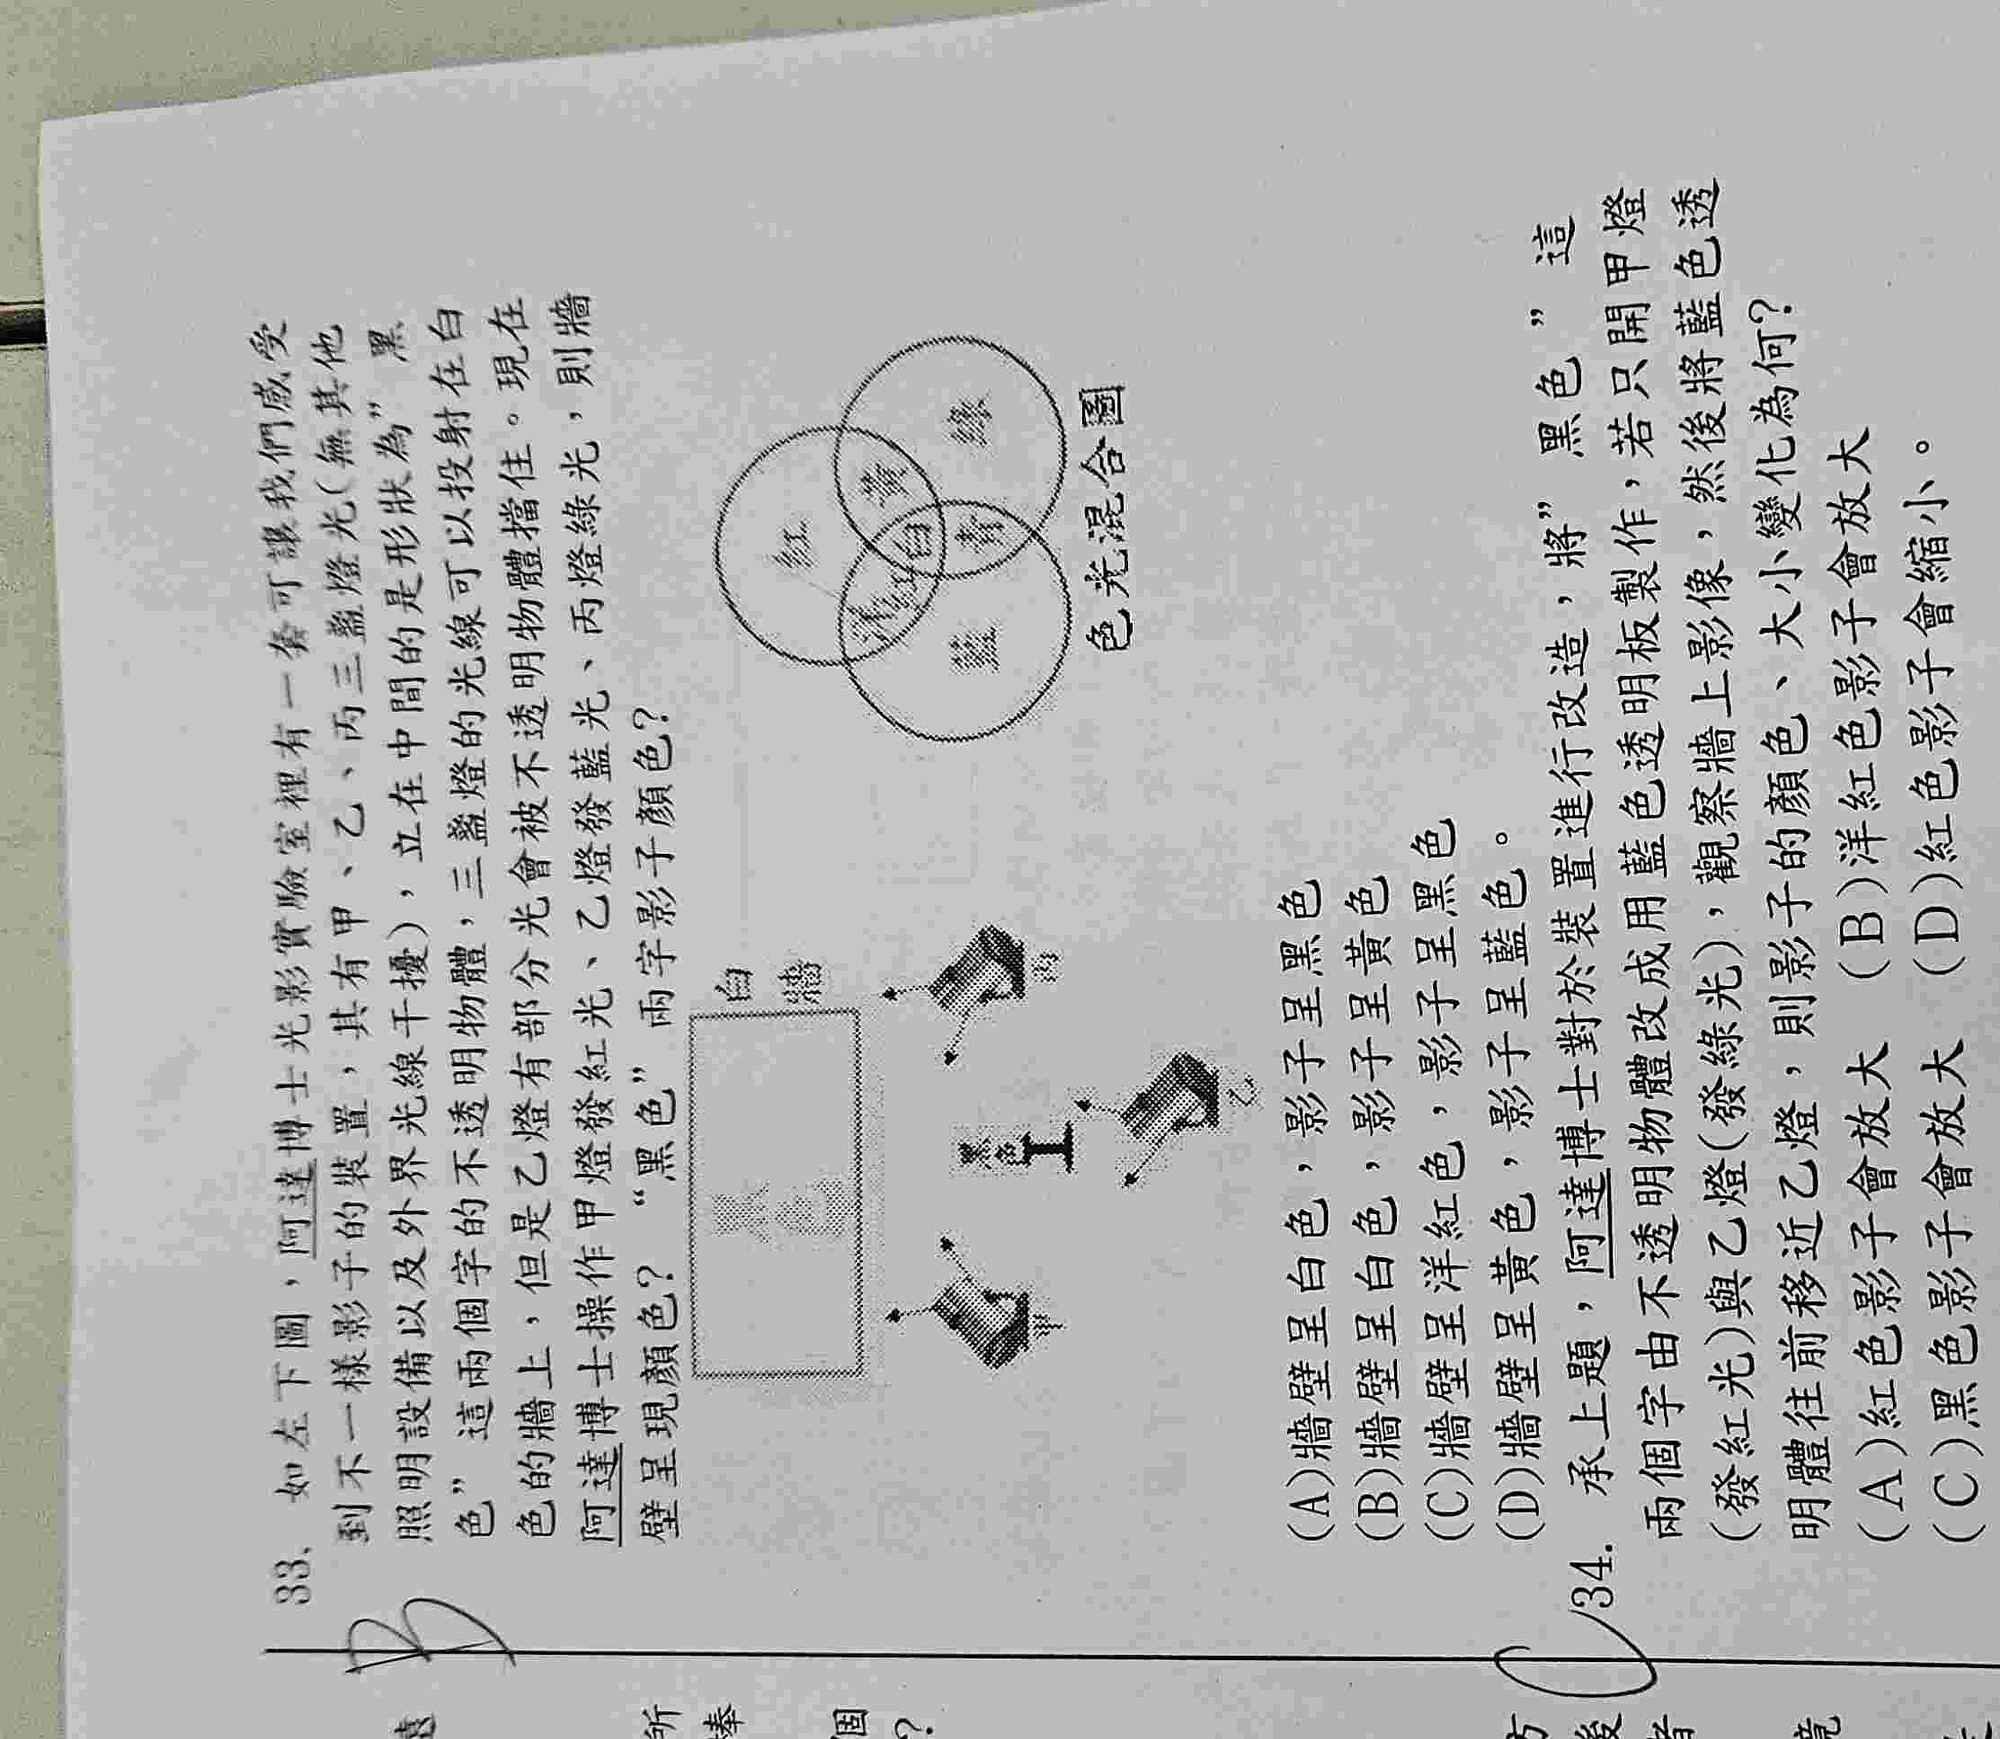 33、如左下圖，阿達博士光影實驗室裡有一套可讓我們感受
到不一樣影子的裝置，其有甲、乙、丙三盞燈光(無其他
照明設備以及外界光線干擾)，立在中間的是形狀為”黑
色”這兩個字的不透明物體，三盞燈的光線可以投射在白
色的牆上，但是乙燈有部分光會被不透明物體擋住。現在
阿達博士操作甲燈發紅光、乙燈發藍光、丙燈綠光，則牆
壁呈現顏色？“黑色”兩字影子顏色？
白
牆
黑
色
甲
乙
丙
紅
洋紅
黃
白
藍
青
綠
色光混合圖
(A)牆壁呈白色，影子呈黑色
(B)牆壁呈白色，影子呈黃色
(C)牆壁呈洋紅色，影子呈黑色
(D)牆壁呈黃色，影子呈藍色。
34. 承上題，阿達博士對於裝置進行改造，將”黑色”這
兩個字由不透明物體改成用藍色透明板製作，若只開甲燈
(發紅光)與乙燈(發綠光)，觀察牆上影像，然後將藍色透
明體往前移近乙燈，則影子的顏色、大小變化為何？
(A)紅色影子會放大 (B)洋紅色影子會放大
(C)黑色影子會放大 (D)紅色影子會縮小。
B
C
遠
所
棒
個
？
方
後
者
境